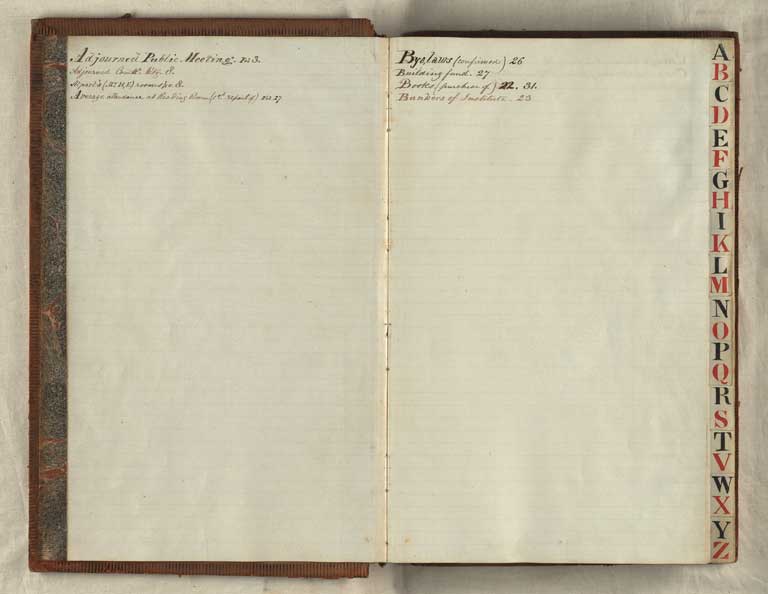 Adjourned Public Meeting. No 3.
Adjourned Comtte Mtg. 8.
rooms 8.
Average attendance at Reading Room (1st report of) No 27
Bye, laws (confirmed) 26
Building fund. 27
Books (purchase of) 22. 31.
Bankers of Institute. 23
A
B
C
D
E
F
G
H
I
K
L
M
N
O
P
Q
R
S
T
V
W
X
Y
Z